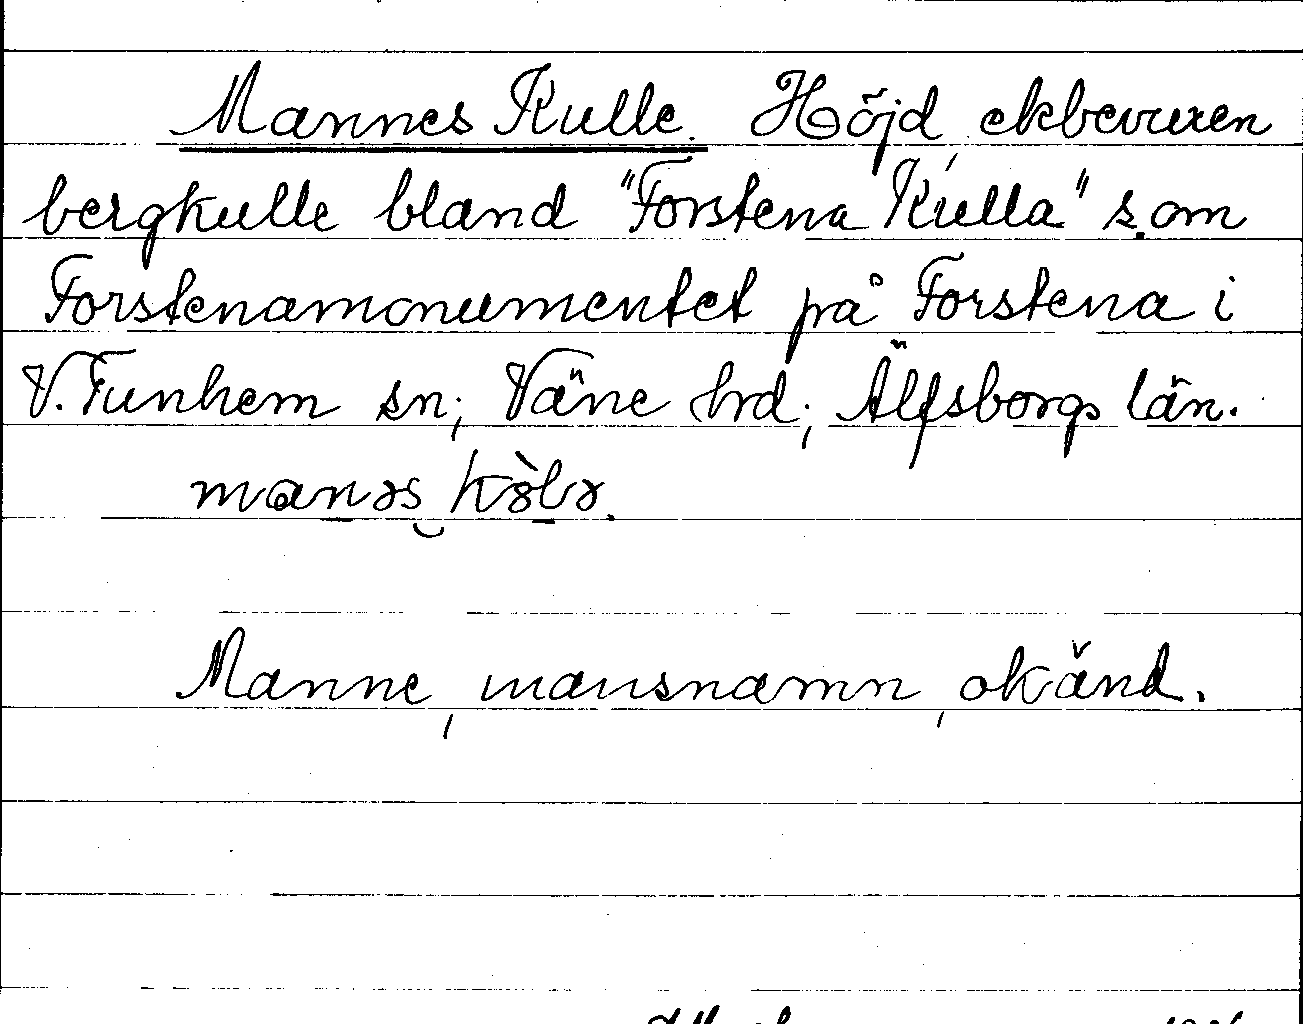 Mannes Kulle. Höjd ekbevuxen
bergkulle bland "Forstena Kulla" s.om
Forstenamonumentet på Forstena i
V. Tunhem sn; Väne hrd; Älfsborgs län.
Manne, mansnamn, okänd.